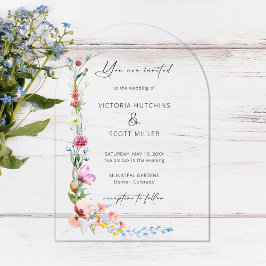 You are invited
to the wedding of
VICTORIA HUTCHINS
&
SCOTT MILLER
SATURDAY, MAY 18,
five o'clock in the evening
MUNICIPAL GARDENS
Denver, Colorado
reception to follow